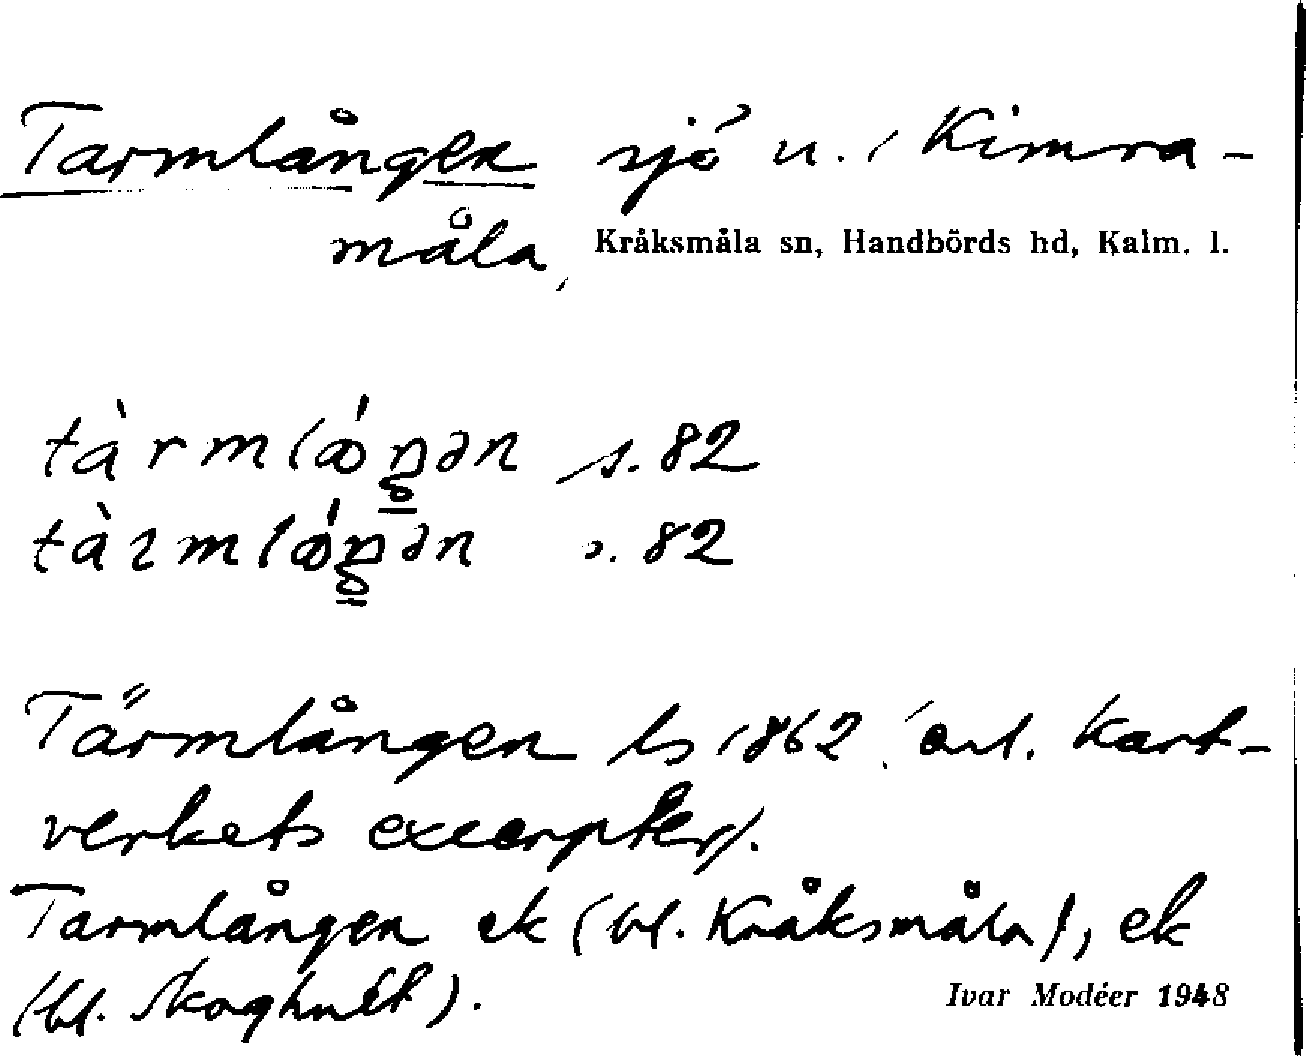 Tarmlången sjö u. / Kimra-
måla, Kråksmåla sn, Handbörds hd, Kalm. l.
s. 82
s. 82
Tärmlången ls 1862 (enl. Kart-
verkets excerpter).
Tarmlången ek (bl. Kråksmåla), ek
(bl. Skoghult).
Ivar Modéer 1948